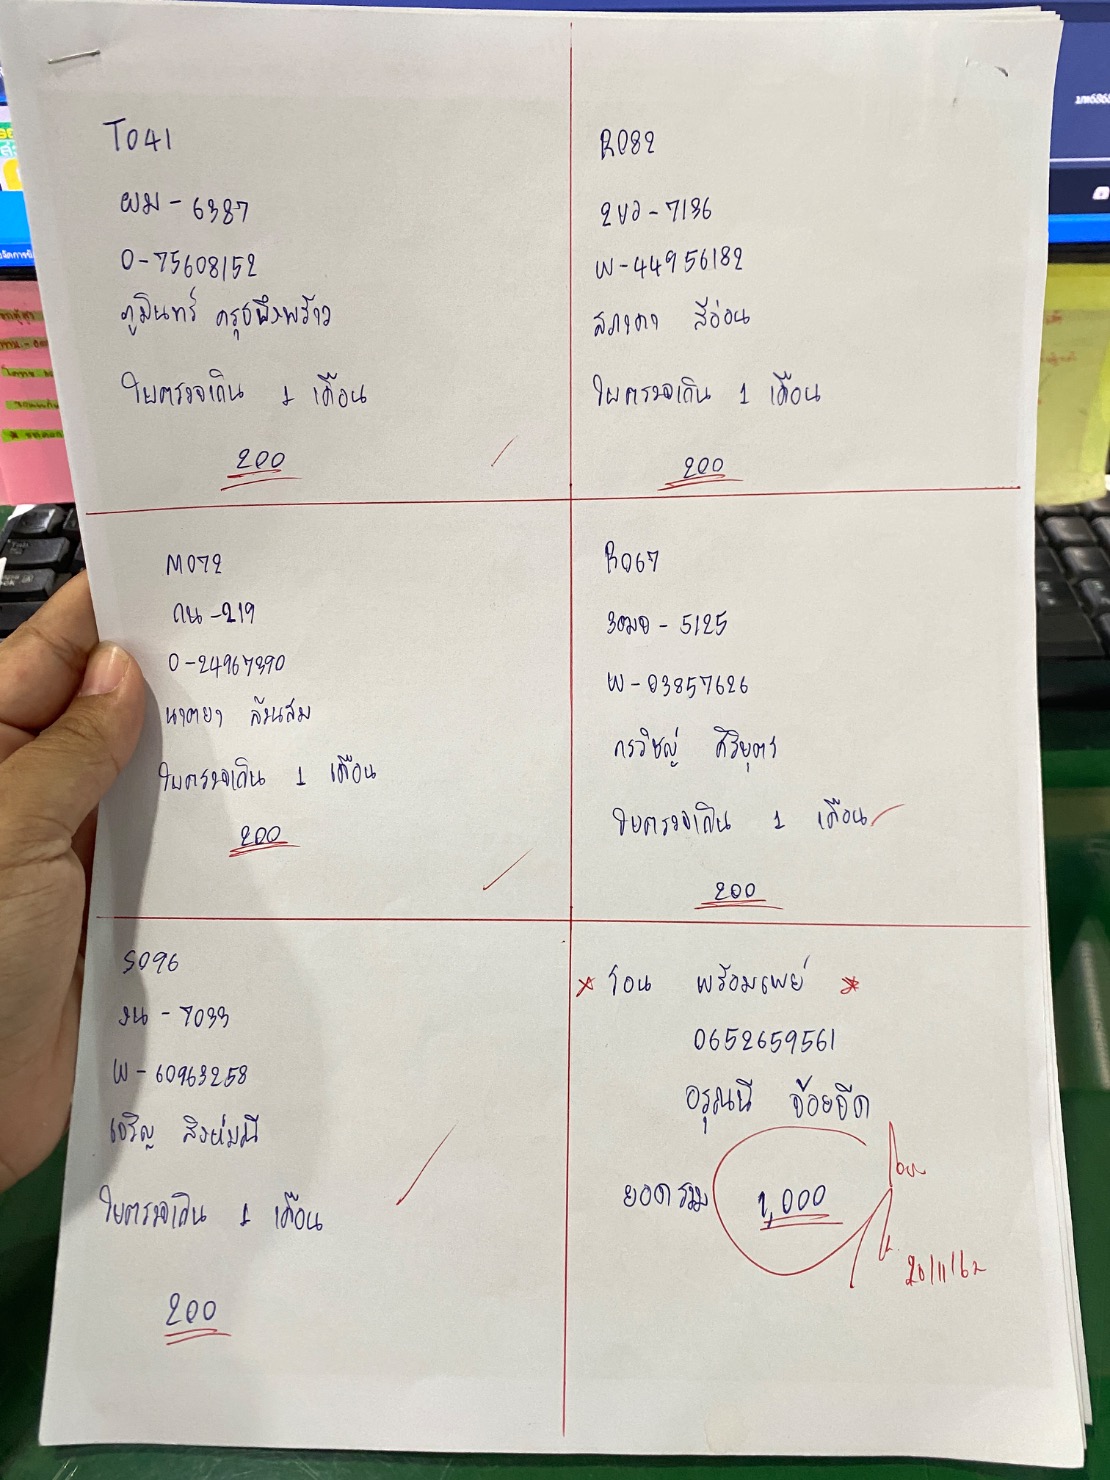 T041
ผม - 6387
0-75608152
ภูมินทร์ ครุธพึ่งพร้าว
ใบตรวจเกิน 1 เดือน
200
R082
2ขอ - 7136
W-44956182
สีอ่อน
ใบตรวจเกิน 1 เดือน
200
M072
ถน - 219
0-24967390
นาตยา ล้นสม
ใบตรวจเกิน 1 เดือน
200
R067
3ฒจ - 5125
W-03857626
กรวิชญ์ ศิริบุตร
ใบตรวจเกิน 1 เดือน
200
S096
งน - 7033
W-60963258
เจริญ สิงห์มณี
ใบตรวจเกิน 1 เดือน
200
* โอน พร้อมเพย์ *
0652659561
อรุณนี จ้อยจีด
ยอดรวม 1,000
20/11/62